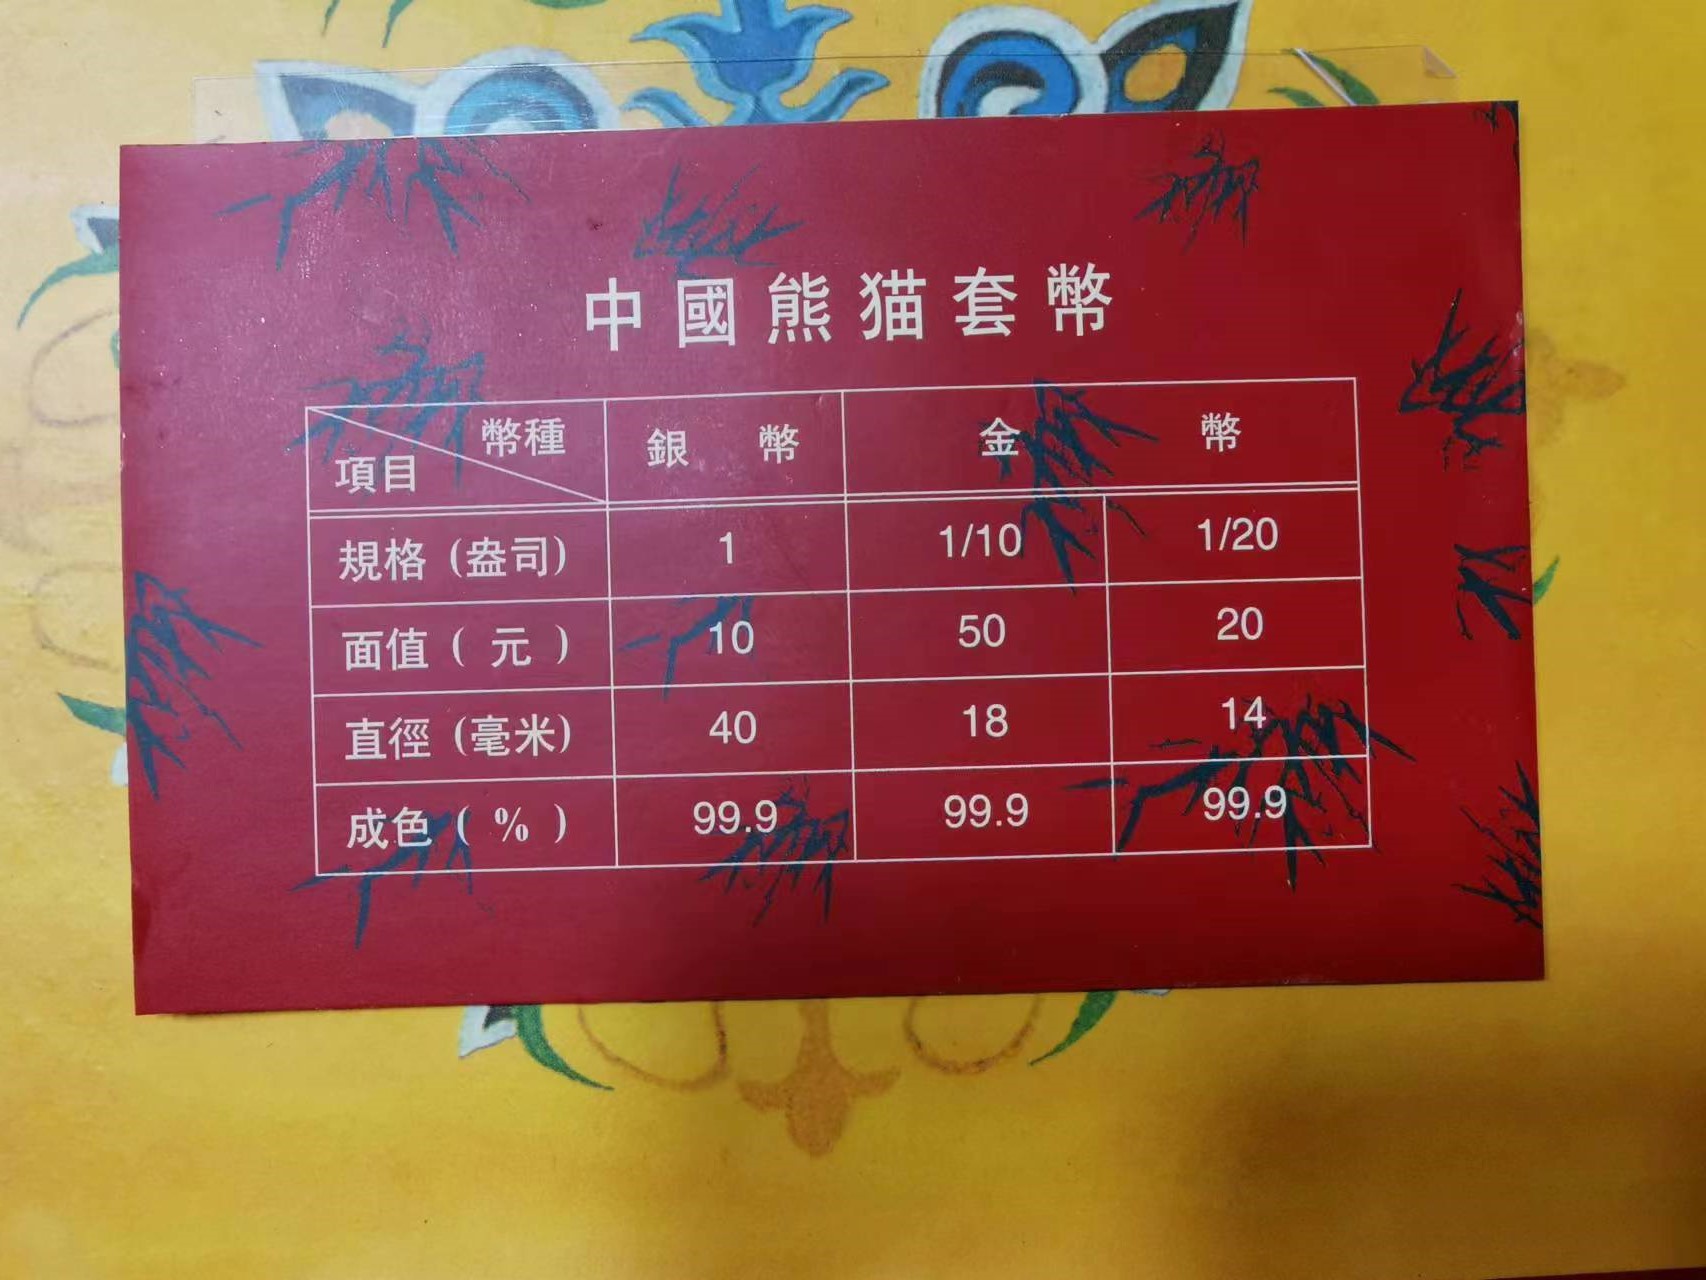 中國熊猫套幣
幣種 銀幣 金幣
項目
規格(盎司) 1 1/10 1/20
面值(元) 10 50 20
直徑(毫米) 40 18 14
成色(%) 99.9 99.9 99.9